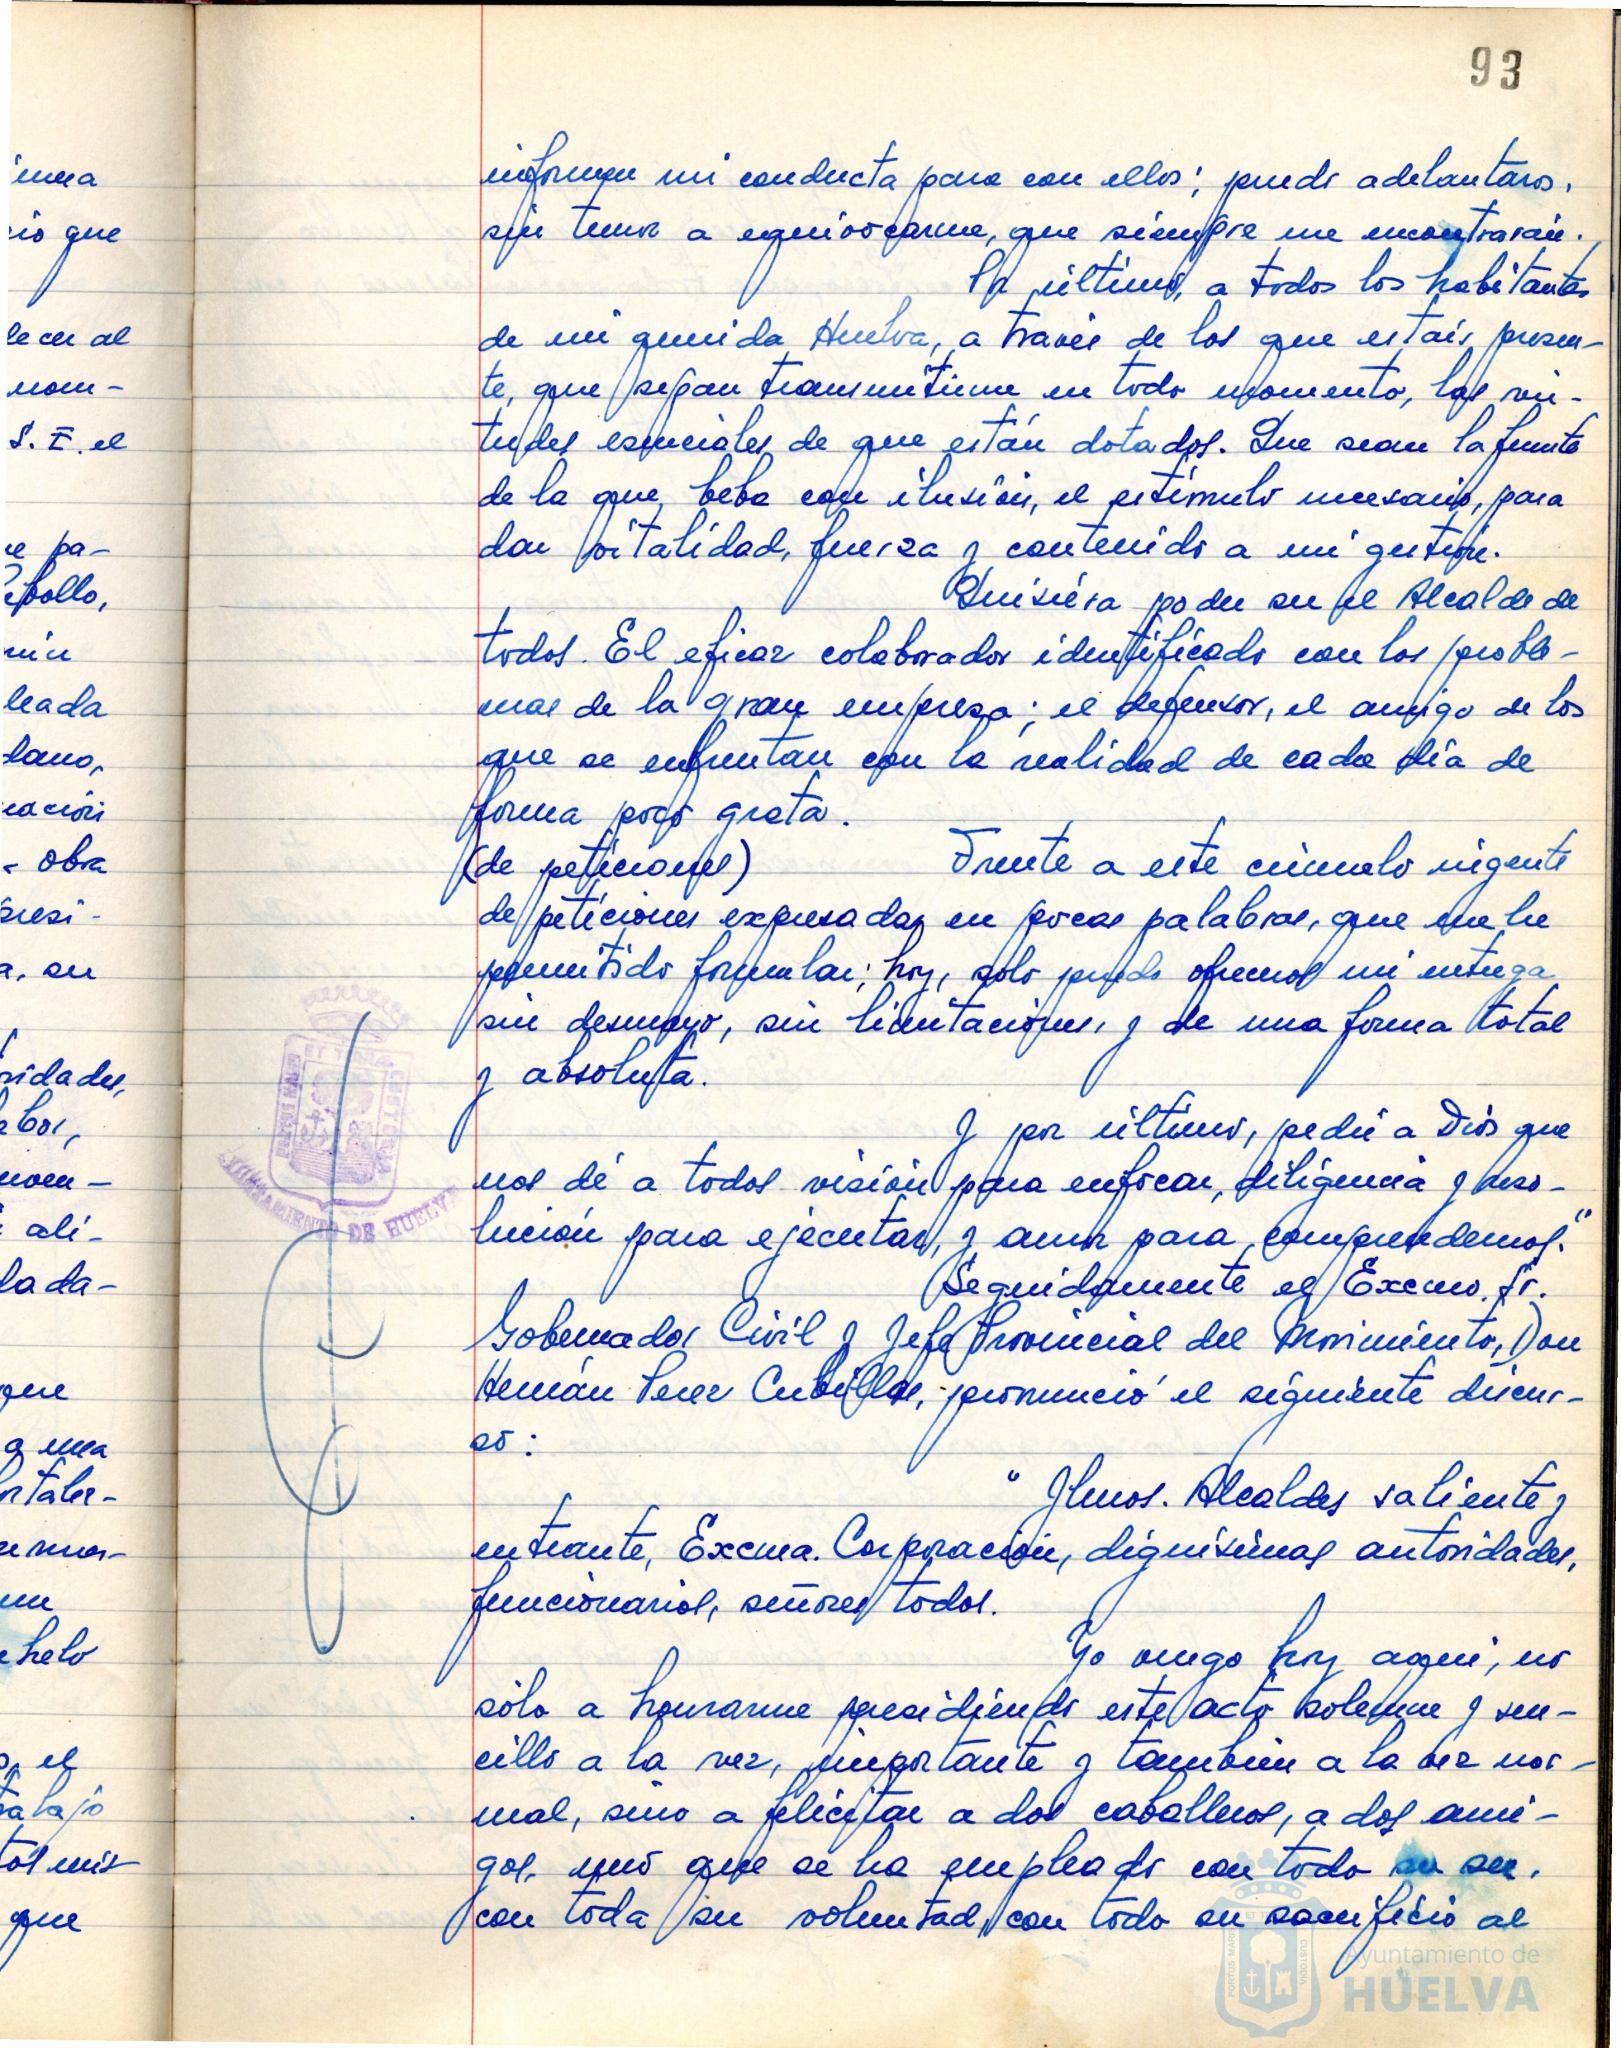 93
informen mi conducta para con ellos; puedo adelantaros,
sin temor a equivocarme, que siempre me encontrarán.
Por último, a todos los habitantes
de mi querida Huelva, a través de los que estais presen-
te, que sepan transmitirme en todo momento, las vir-
tudes esenciales de que están dotados. Que sean la fuente
de la que beba con ilusión, el estímulo necesario, para
dar vitalidad, fuerza y contenido a mi gestión.
Quisiera poder ser el Alcalde de
todos. El eficaz colaborador identificado con los proble-
mas de la gran empresa; el defensor, el amigo de los
que se enfrentan con la realidad de cada día de
forma poco grata.
(de peticiones) Frente a este cúmulo ingente
de peticiones expresadas en pocas palabras, que me he
permitido formular; hoy, solo puedo ofreceros mi entrega
sin desmayo, sin limitaciones, y de una forma total
y absoluta.
Y por último, pedir a Dios que
nos dé a todos visión para enfocar, diligencia y reso-
lución para ejecutar, y amor para comprendernos."
Seguidamente el Excmo. Sr.
Gobernador Civil y Jefe Provincial del Movimiento, Don
Hernán Perez Cubillas, pronunció el siguiente discur-
so:
" Ilmos. Alcaldes saliente y
entrante, Excma. Corporación, dignísimas autoridades,
funcionarios, señores todos.
Yo vengo hoy aquí, no
sólo a honrarme presidiendo este acto solemne y sen-
cillo a la vez, importante y también a la vez nor-
mal, sino a felicitar a dos caballeros, a dos ami-
gos, uno que se ha empleado con todo su ser,
con toda su voluntad, con todo su sacrificio al
inua
cio que
lecer al
nom-
S. I. el
pa-
leada
nación
obra
presi-
a, su
ridades,
labor,
nom-
ali-
lada-
que
a una
un
helo
el
trabajo
que
AYUNTAMIENTO DE HUELVA
PORTUS MARIS ET TERRAE CUSTODIA
Ayuntamiento de
HUELVA